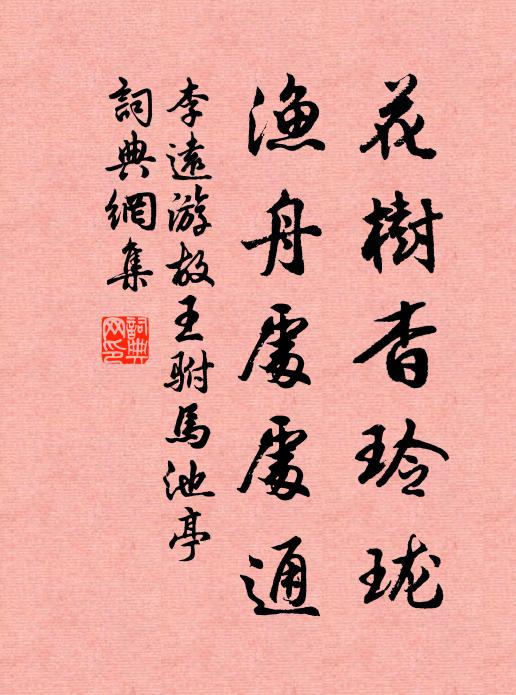 花樹杳玲瓏
漁舟處處通
李遠游故王駙馬池亭
詞典網集
詞典網印